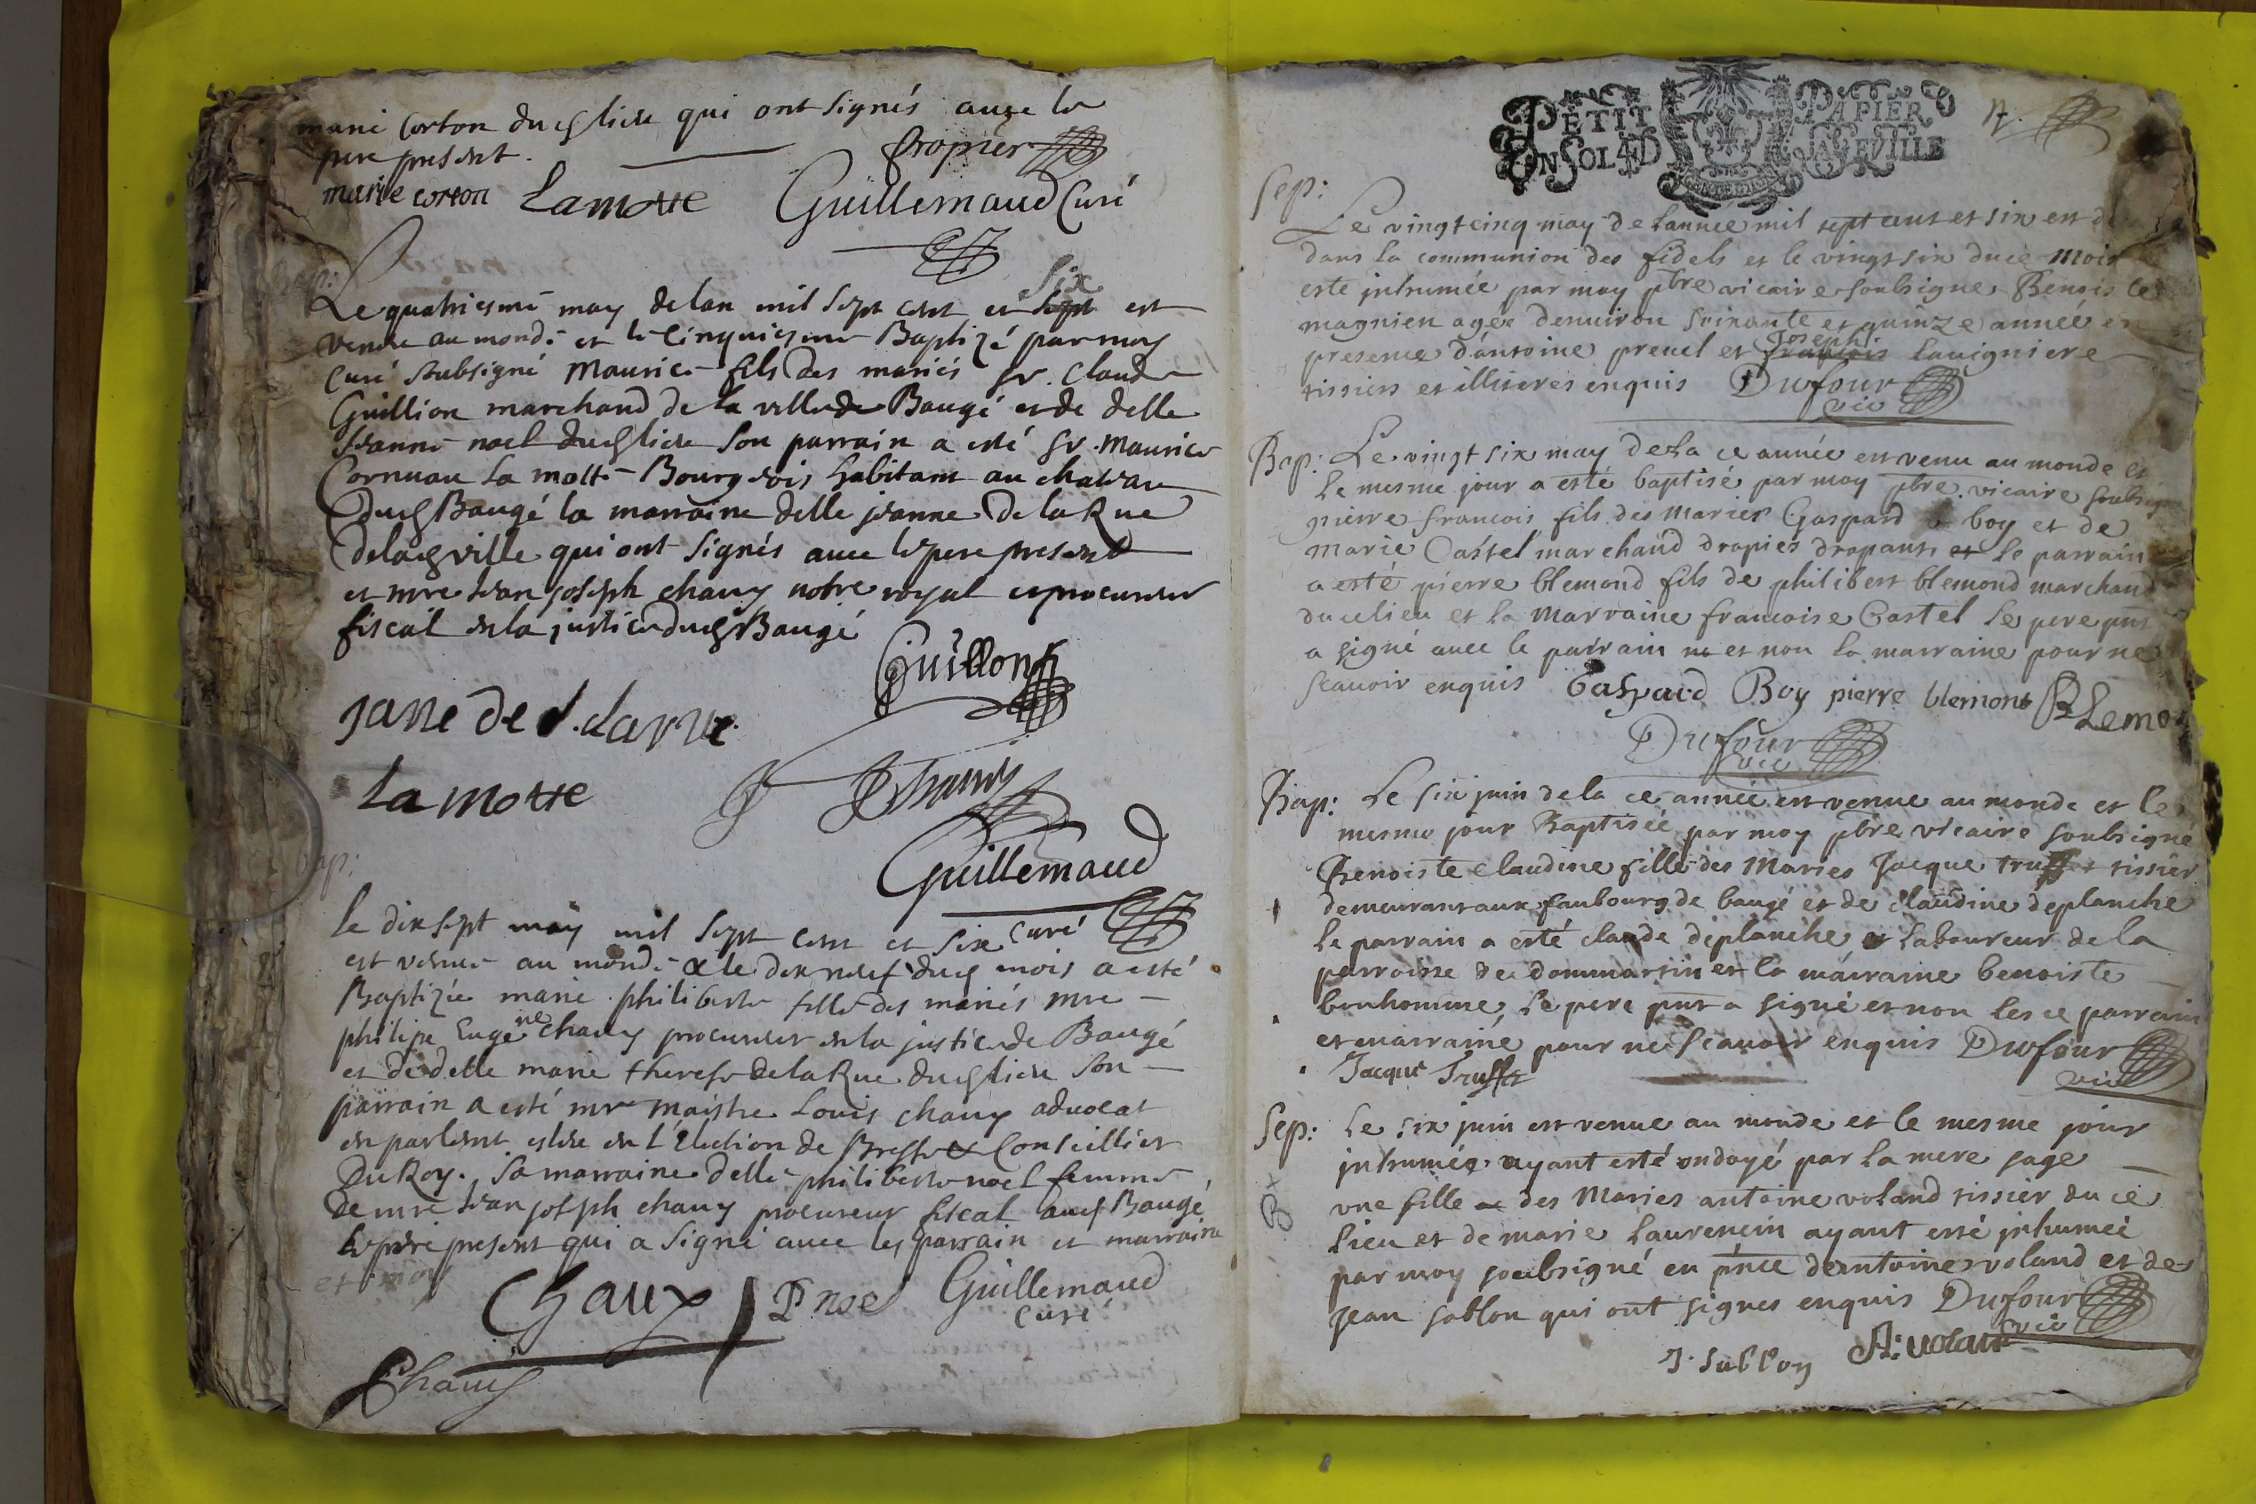 marie Corton dud lieu qui ont signés avec le
pere present.
propier
marie corton Lamotte Guillemaud Curé
Bap:
Le quatriesme may de lan mil sept cent et sept six est
venu au monde et le cinquiesme Baptizé par moy
Curé subsigné Maurice fils des mariés sr. Claude
Guillion marchand de la ville de Baugé et de delle
jeanne noel dud lieu son parrain a esté sr. Maurice
Cornuau la motte Bourgeois habitant au chateau
dud Baugé la marraine delle jeanne De la Rue
de lad ville qui ont signés avec le pere present
et mre jean joseph chaux notre royal et procureur
fiscal en la justice dud Baugé
Guillon
jane de l.larue
la motte
Chaux
Guillemaud
curé
Bap:
le dix sept may mil sept cent et six
est venue au monde & le dix neuf dud mois a esté
Baptizée marie philiberte fille des mariés mre
philipe Eugene chaux procureur en la justice de Baugé
et de delle marie therese de la Rue dud lieu son
parrain a esté mre maistre Louis chaux advocat
en parlement esleu en l'Election de Bresse & Conseillier
Du Roy. sa marraine delle philiberte noel femme
de mre jean joseph chaux procureur fiscal aud Baugé
le pere present qui a signé avec les parrain et marraine
et moy
Chaux P noel Guillemaud
curé
Chaux
PETIT PAPIER
UN SOL 4 D LA FEVILLE
Sep:
Le vingt cinq may de lannée mil sept cent et six est
dans la communion des fidels et le vingt six du ce mois
esté inhumée par moy pbre vicaire soubsigne Benois
magnien agée denuiron soixante et quinze année
presence d'antoine preuel et françois Joseph lauigniere
tissiers et illiteres enquis Dufour
vic
Bap: Le vingt six may de la ce année est venu au monde et
le mesme jour a esté baptisé par moy pbre vicaire soubsig
pierre francois fils des mariés Gaspard boy et de
marie Castel marchand drapies drapant et le parrain
a esté pierre blemond fils de philibert blemond marchand
du ce lieu et la marraine francoise Castel le pere pnt
a signé auec le parrain et non la marraine pour ne
scauoir enquis Gaspard Boy pierre blemont
Blemo
Dufour
vic
Bap: Le six juin de la ce année est venue au monde et le
mesme jour Baptisée par moy pbre vicaire soubsigné
Benoiste claudine fille des Maries Jacque truffet tissier
demeurant aux faubourg de baugé et de claudine deplanche
le parrain a esté claude deplanche laboureur de la
parroisse de dommartin et la marraine benoiste
bonhomme, le pere pnt a signé et non les ce parrain
et marraine pour ne scauoir enquis Dufour
vic
Jacque Truffet
Sep: Le six juin est venue au monde et le mesme jour
inhumée ayant esté ondoyé par la mere sage
une fille des Maries antoine voland tissier du ce
lieu et de marie laurencin ayant esté inhumée
par moy soubsigné en pnce dantoine voland et de
jean sablon qui ont signes enquis Dufour
vic
J. sablon A: volan